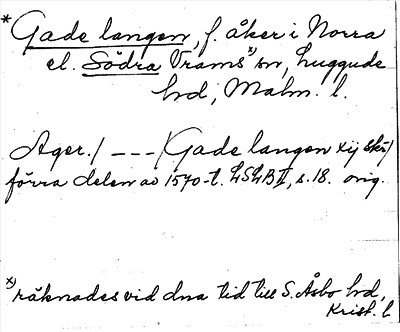 * Gade langen, f. åker i Norra
el. Södra Vrams x) sn, Luggude
hd, Malm. l.
Ager./ --- /Gade langen xij skr/
förra delen av 1570-t. LSLB II, s. 18. orig.
x) räknades vid dna tid till S. Åsbo hd,
Krist. l.